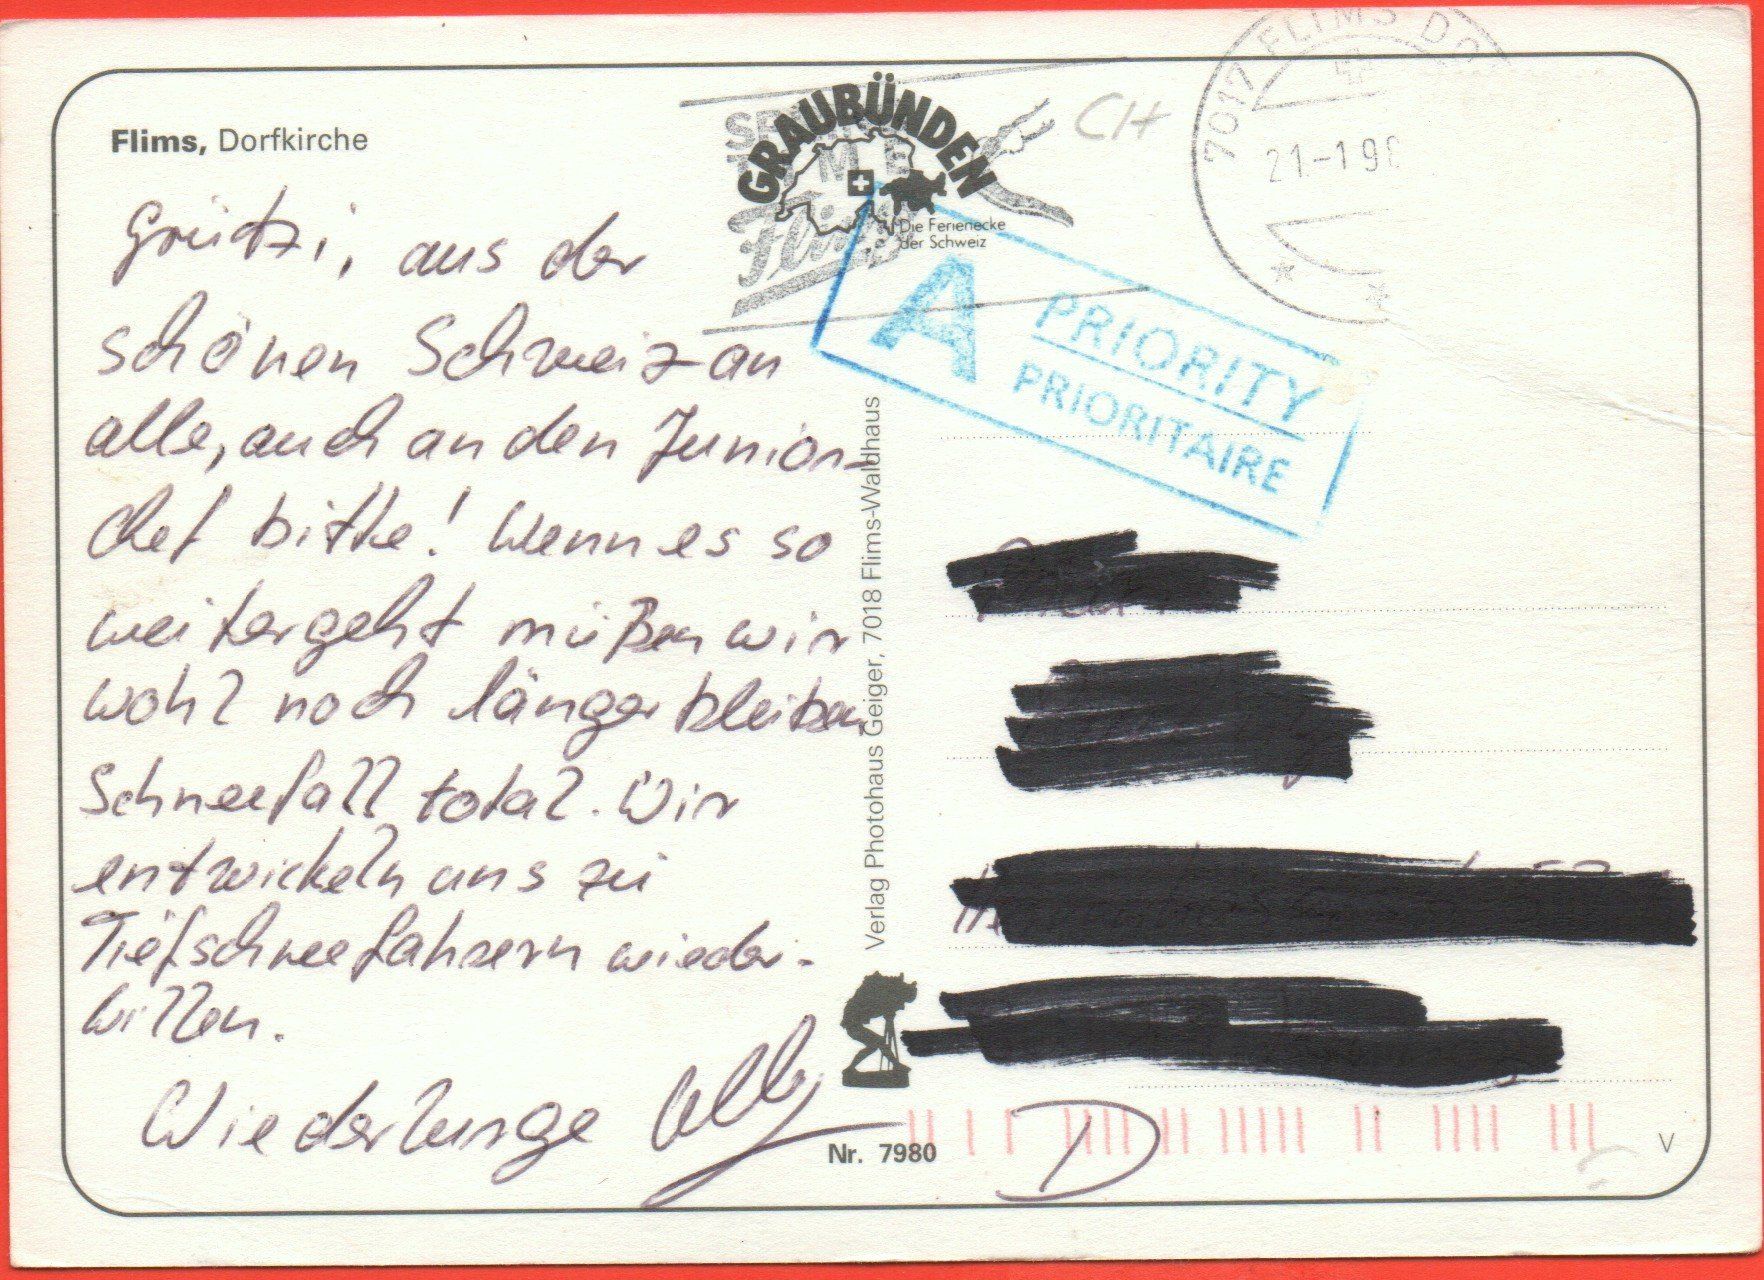 Flims, Dorfkirche
GRAUBÜNDEN
Die Ferienecke
der Schweiz
Flims
CH
7017 FLIMS DO
21.-1.98
A PRIORITY
PRIORITAIRE
Grützi, aus der
schönen Schweiz an
alle, auch an den Junior-
chef bitte! Wenn es so
weitergeht müßen wir
wohl noch länger bleiben
Schneefall total. Wir
entwickeln uns zu
Tiefschneefahrern wieder-
willen.
Wiederlunge
Verlag Photohaus Geiger, 7018 Flims-Waldhaus
Nr. 7980
D
V